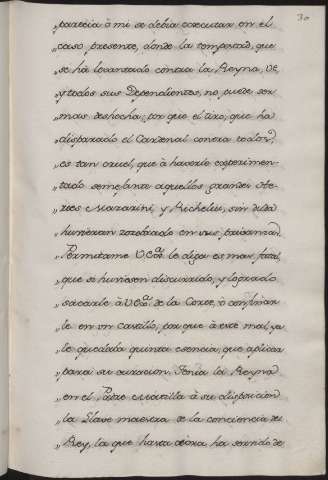 30
„parecia à mi se debia executar en el
„caso presente, donde la tempestad, que
„se hà levantado contra la Reyna, VE,
„y todos sus Dependientes, no puede ser
„mas deshecha; por que el tiro, que ha
„disparado el Cardenal contra todos,
„es tan cruel, que à haverle experimen-
„tado semejante aquellos grandes He-
„roes Mazarini, y Richelieu, sin duda
„huvieran zozobrado en sus privanzas.
„Permitame V.Exª. le diga es mas fatal,
„que si huviesen discurrido, y logrado
„sacarle à V.Exª. de la Corte, ò confinar
„le en un castillo, por que à este mal, ya
„le quedaba quinta esencia, que aplicar
„para su curacion. Tenia la Reyna
„en el Padre Matilla à su disposicion
„la llave maestra de la conciencia del
„Rey, la que hasta aora ha servido de